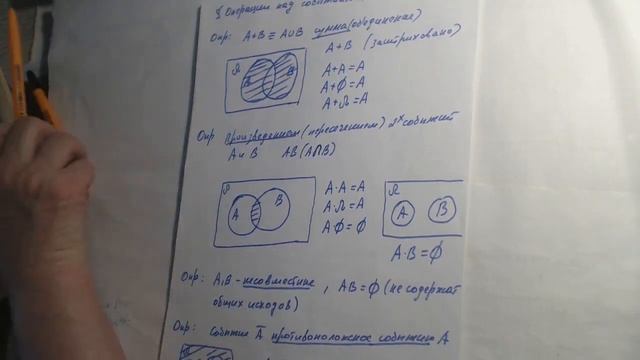 § Операции над события
Опр: A+B ≡ A∪B сумма (объединение)
A+B (заштриховано)
Ω
A B
A+A=A
A+∅=A
A+Ω=A
Опр Произведением (пересечением) 2ˣ событий
A и B AB (A∩B)
Ω
A B
A·A=A
A·Ω=A
A·∅=∅
Ω
A B
A·B=∅
Опр: A,B - несовместные, AB=∅ (не содержат
общих исходов)
Опр: Событие Ā противоположное событию A